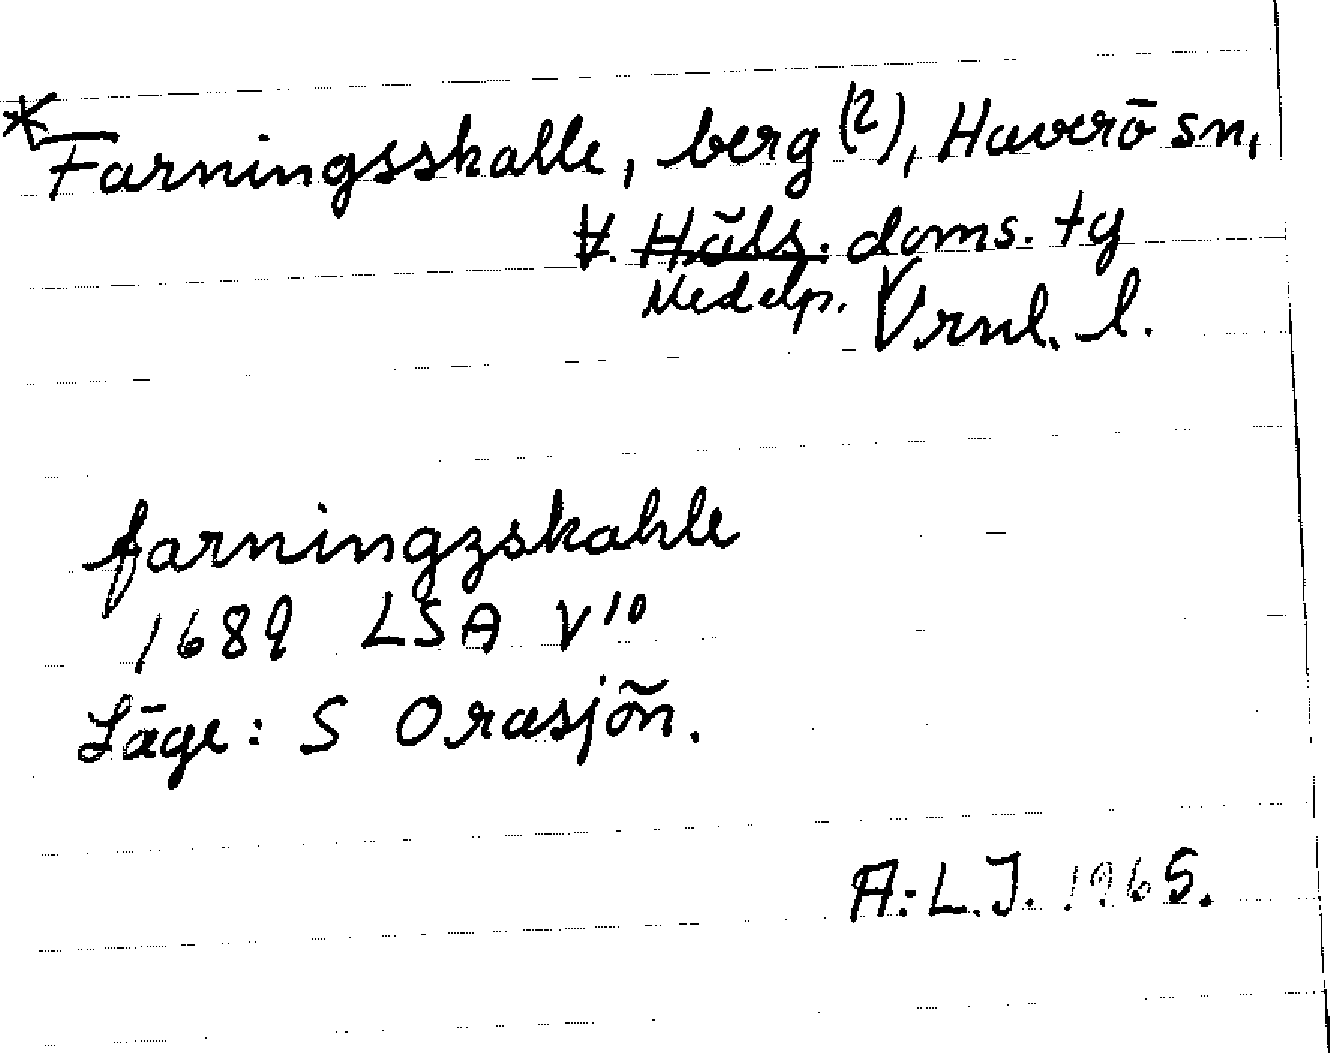 * Farningsskalle, berg (?), Haverö sn,
V. Häls. doms. tg
Medelp. Vrnl. l.
farningzskahle
1689 LSA V 10
Läge: S Orasjön.
A.L.J. 1965.